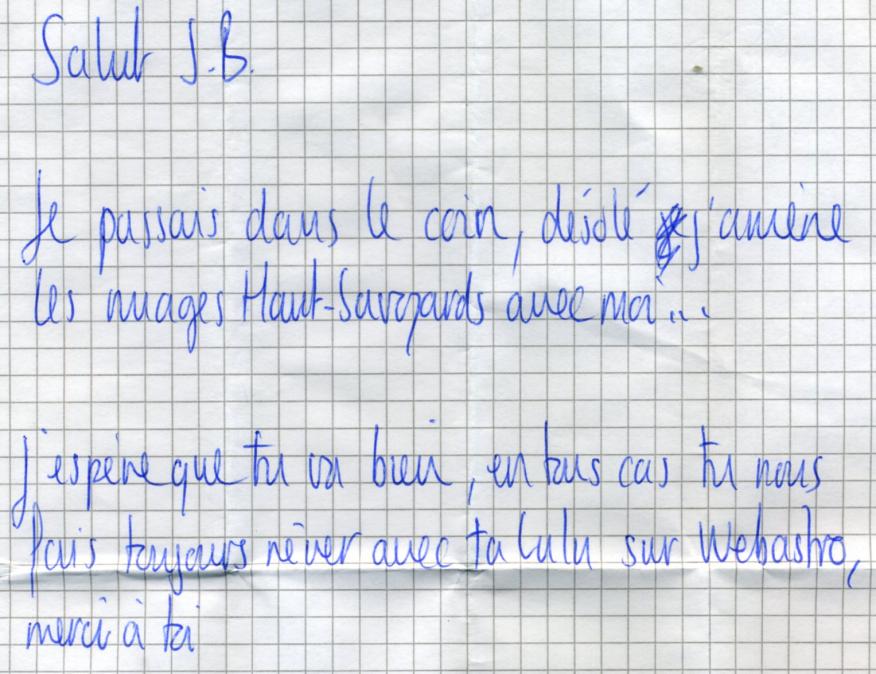 Salut J.B.
Je passais dans le coin, désolé j'amène
les nuages Haut-Savoyards avec moi...
J'espère que tu va bien, en tous cas tu nous
fais toujours rêver avec ta lulu sur Webastro,
merci à toi